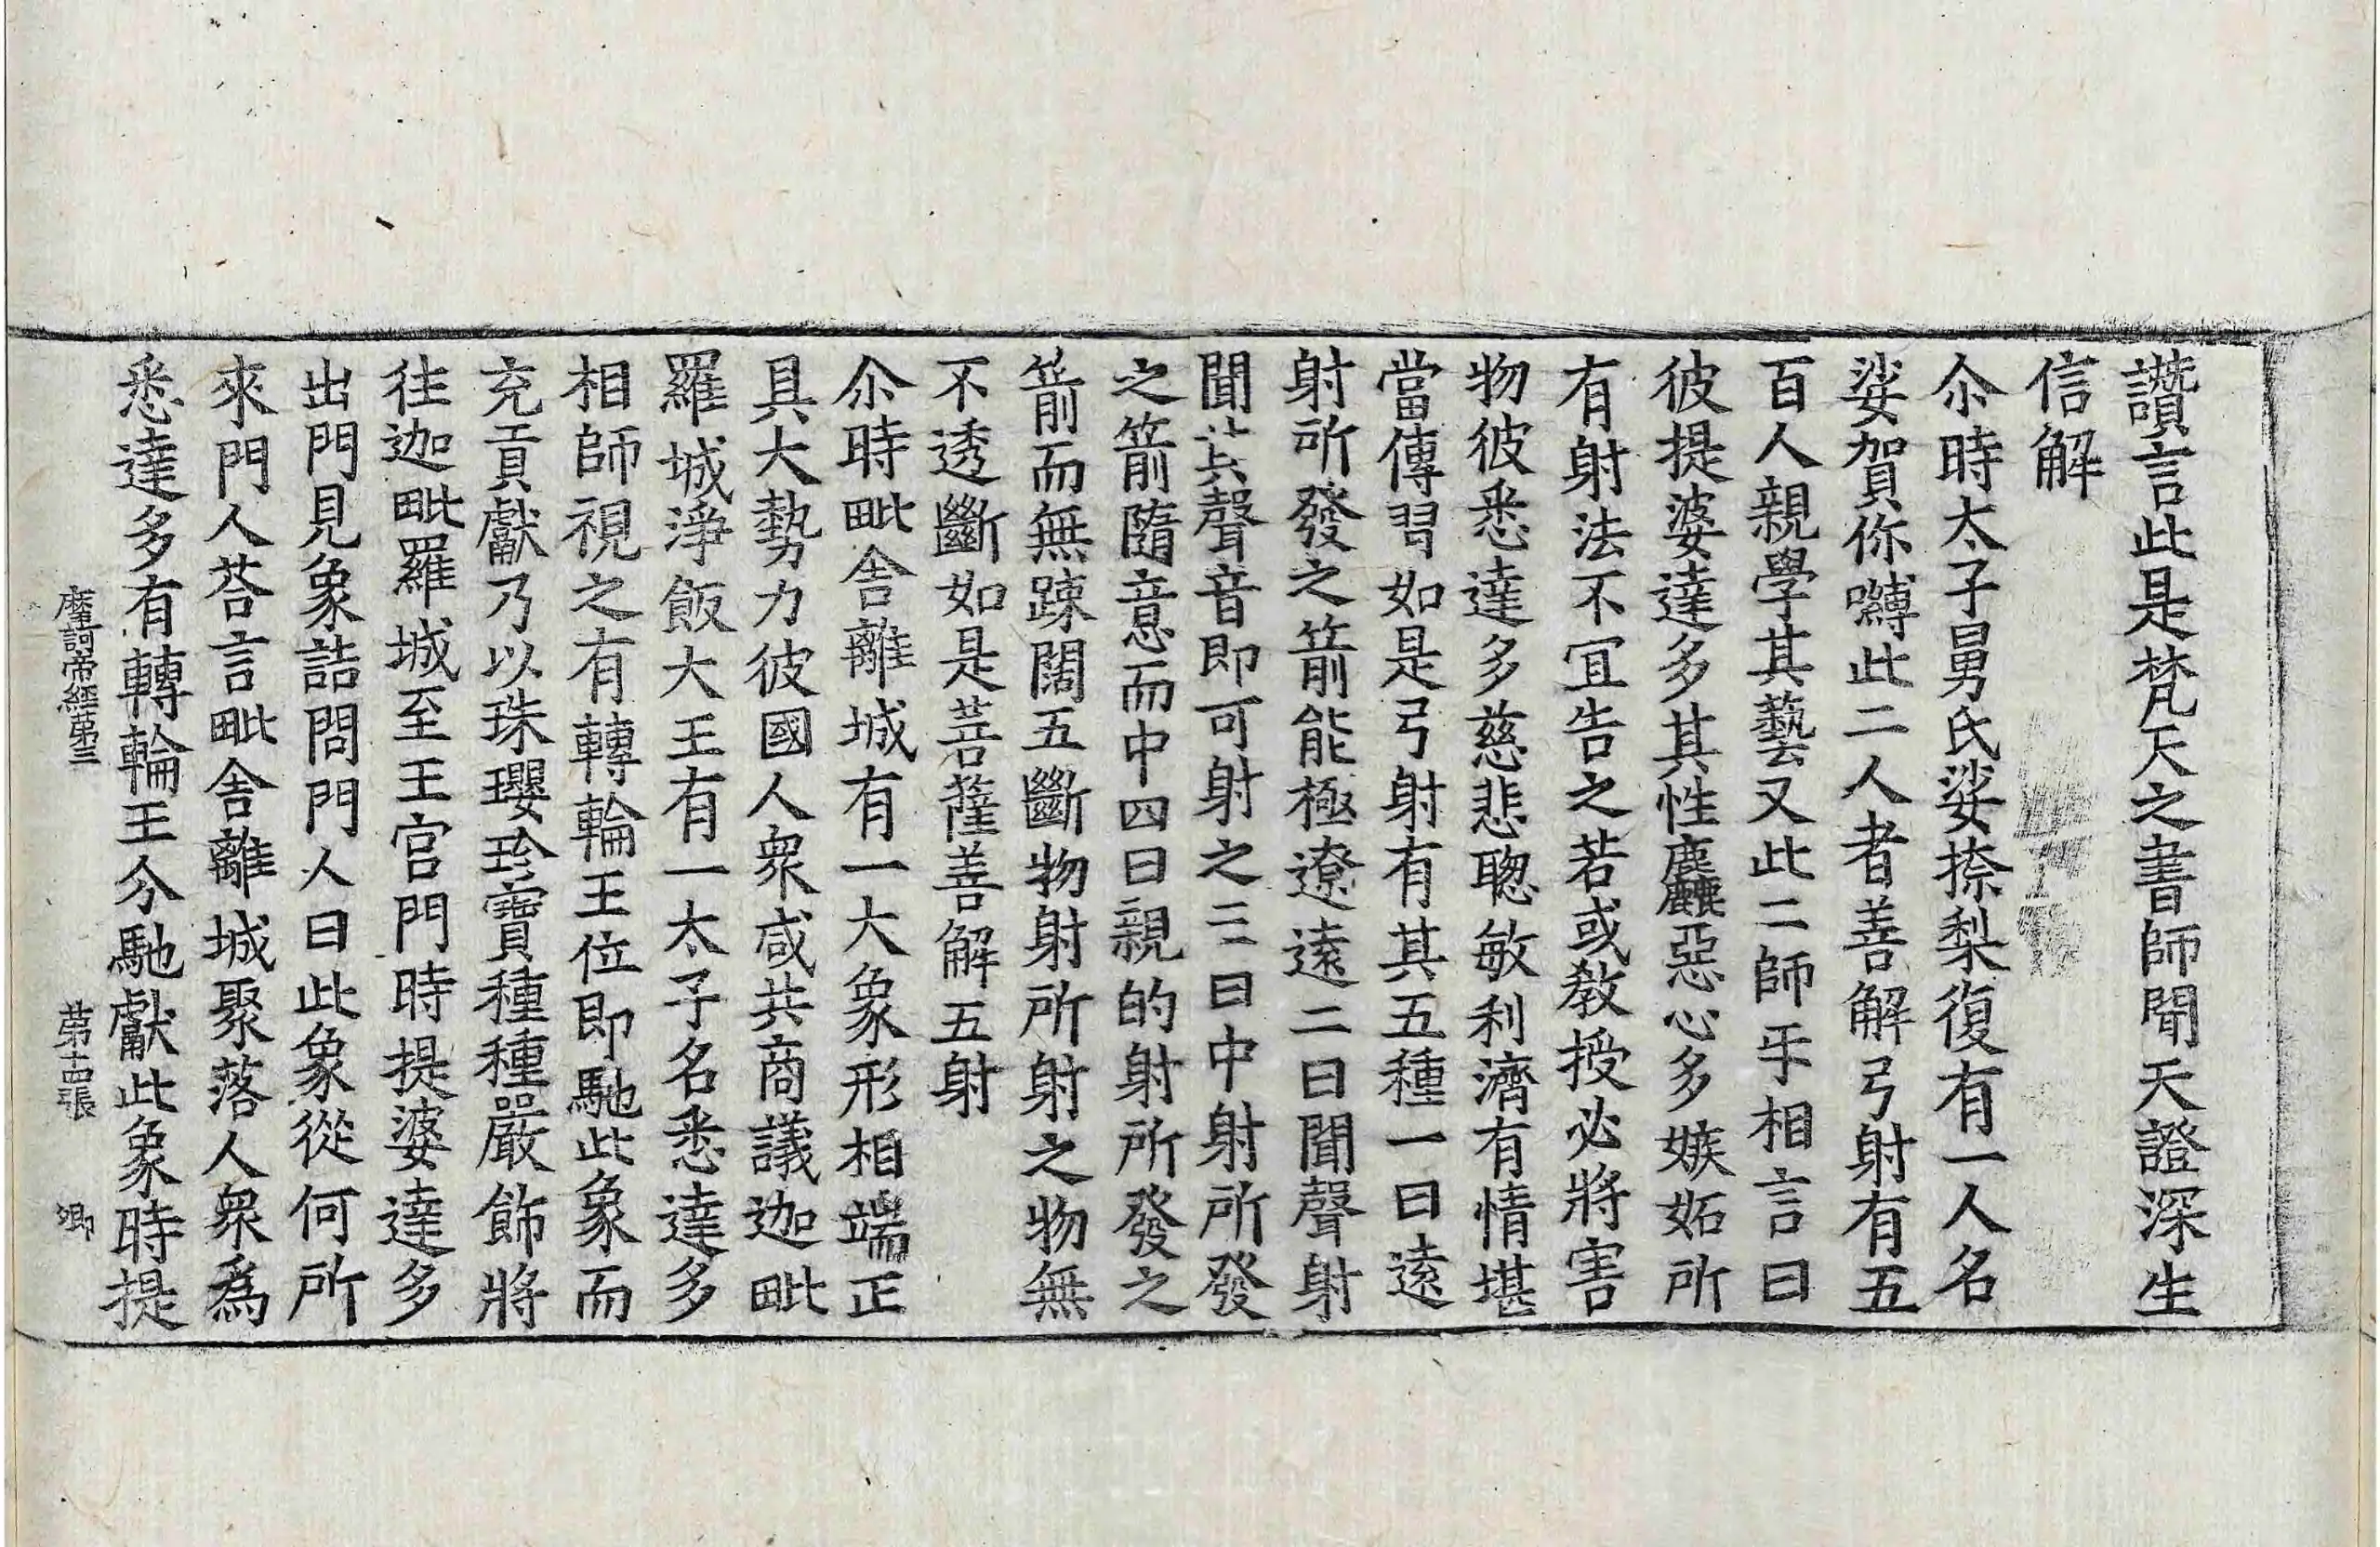 讚言此是梵天之書師聞天證深生
信解
尒時太子舅氏娑捺梨復有一人名
娑賀你嚩此二人者善解弓射有五
百人親學其藝又此二師𠇍相言曰
彼提婆達多其性麁𪋻惡心多嫉妬所
有射法不冝告之若或教授必將害
物彼悉達多慈悲聦敏利濟有情堪
當傳習如是弓射有其五種一曰遠
射所發之箭能極遼遠二曰聞聲射
聞其聲音即可射之三曰中射所發
之箭隨意而中四曰親的射所發之
箭而無踈闊五斷物射所射之物無
不透斷如是菩薩善解五射
尒時毗舍離城有一大象形相端正
具大勢力彼國人衆咸共商議迦毗
羅城淨飯大王有一太子名悉達多
相師視之有轉輪王位即馳此象而
充貢獻乃以珠瓔珎寶種種嚴飾將
往迦毗羅城至王宮門時提婆達多
出門見象詰問門人曰此象從何所
來門人荅言毗舍離城聚落人衆爲
悉達多有轉輪王分馳獻此象時提
摩訶帝經第三 第十四張 卿